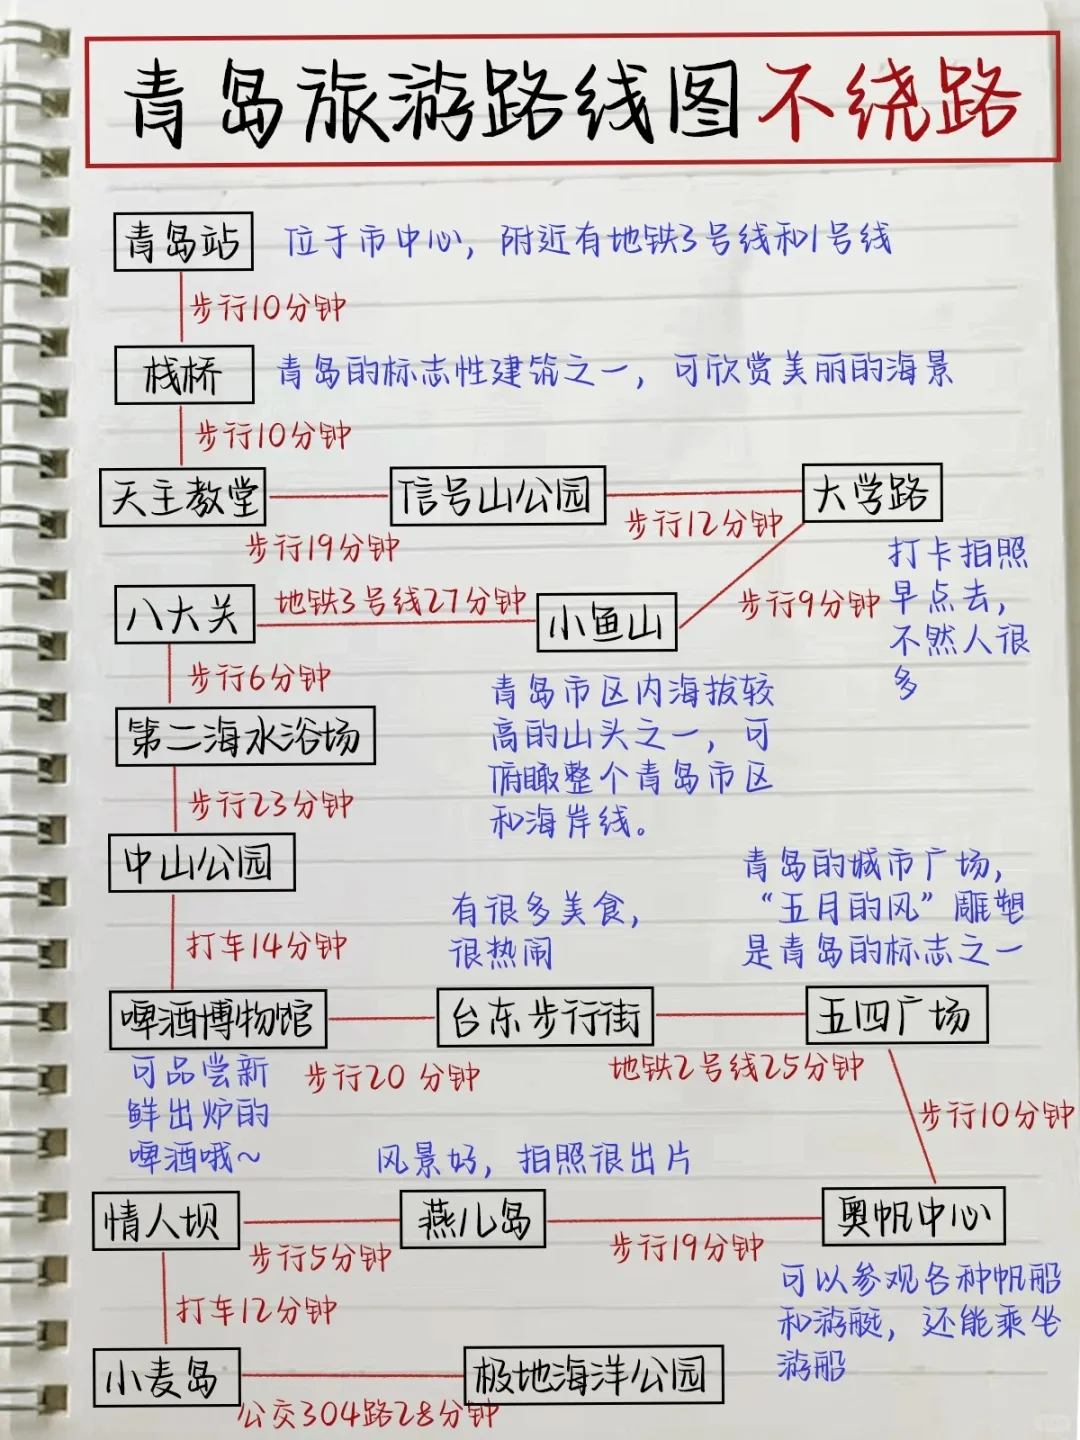 青岛旅游路线图不绕路
青岛站 位于市中心，附近有地铁3号线和1号线
步行10分钟
栈桥 青岛的标志性建筑之一，可欣赏美丽的海景
步行10分钟
天主教堂 信号山公园 大学路
步行19分钟 步行12分钟
打卡拍照
早点去，
不然人很
多
步行9分钟
八大关 地铁3号线27分钟 小鱼山
步行6分钟
青岛市区内海拔较
高的山头之一，可
俯瞰整个青岛市区
和海岸线。
第二海水浴场
步行23分钟
中山公园
打车14分钟
有很多美食，
很热闹
青岛的城市广场，
“五月的风”雕塑
是青岛的标志之一
啤酒博物馆 台东步行街 五四广场
步行20分钟 地铁2号线25分钟
可品尝新
鲜出炉的
啤酒哦~
步行10分钟
风景好，拍照很出片
情人坝 燕儿岛 奥帆中心
步行5分钟 步行19分钟
可以参观各种帆船
和游艇，还能乘坐
游船
打车12分钟
小麦岛 极地海洋公园
公交304路28分钟